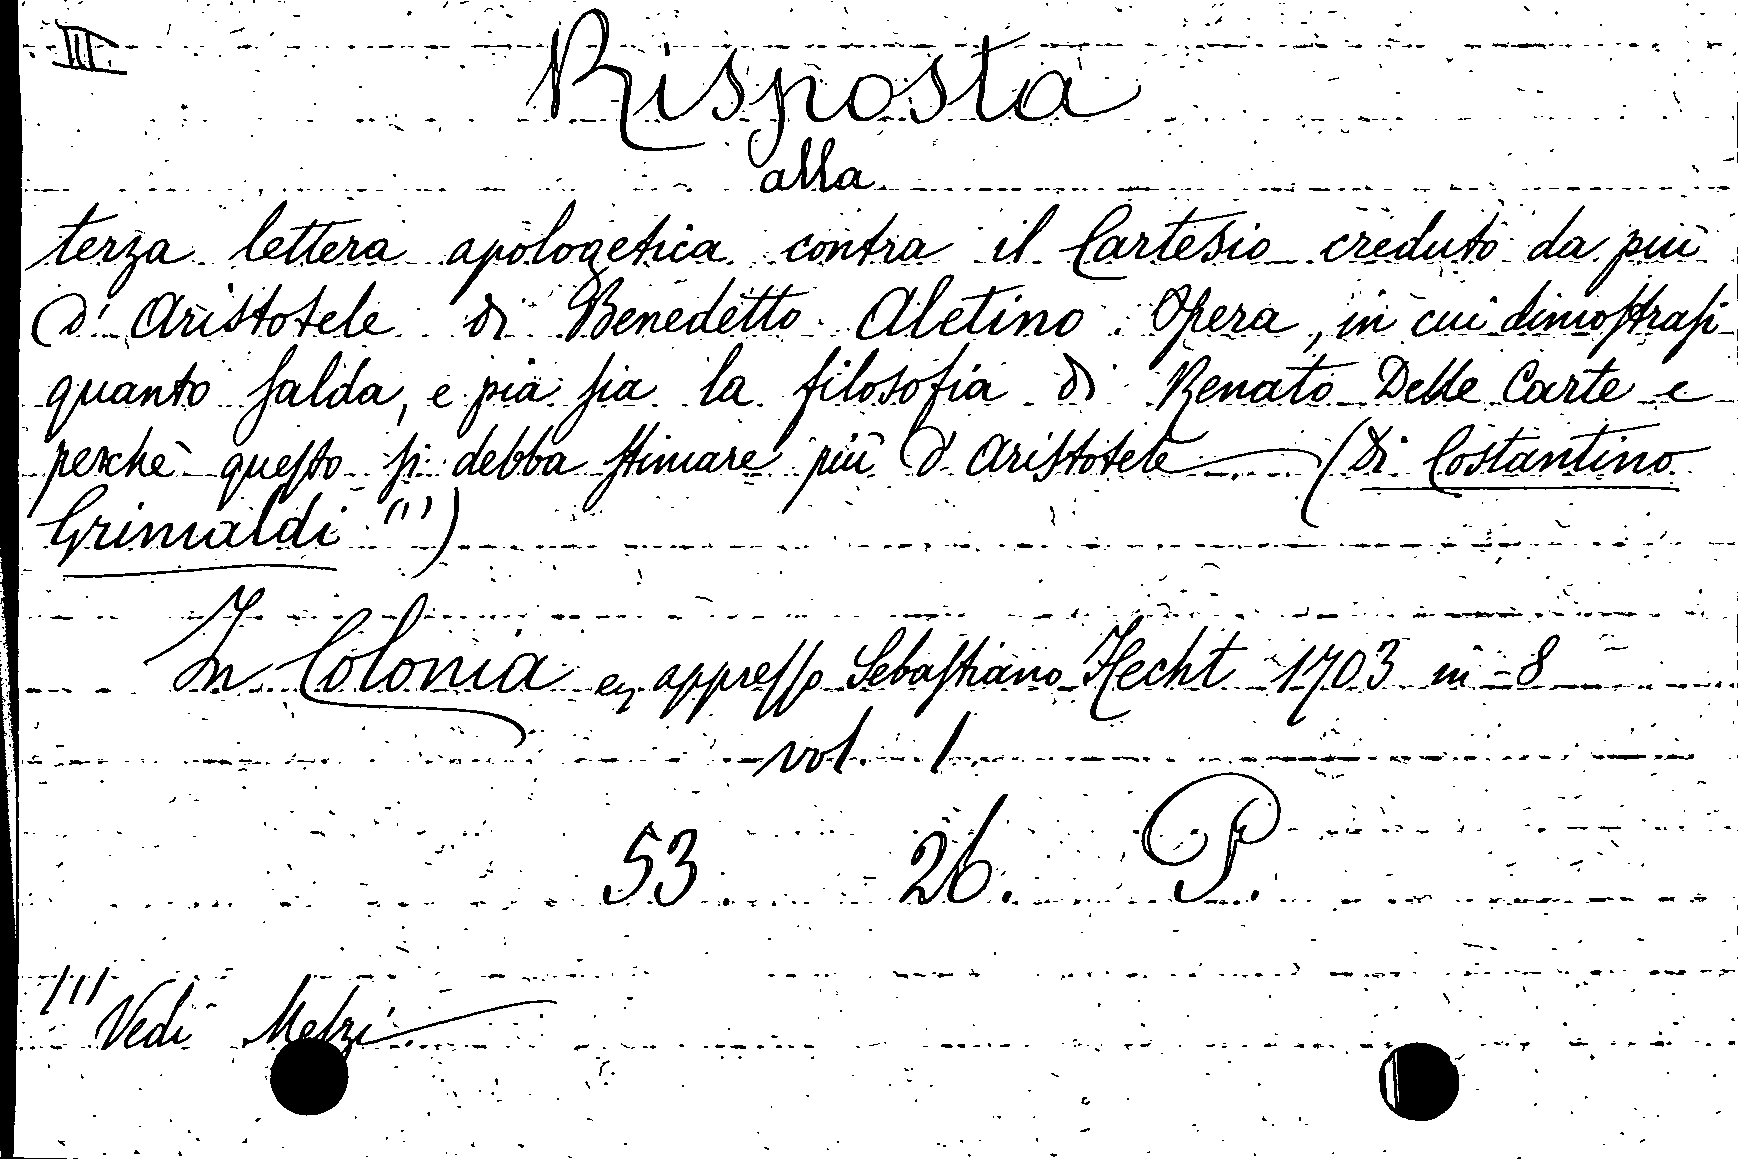 III.
Risposta
alla
terza lettera apologetica contra il Cartesio creduto da più
d'Aristotele di Benedetto Aletino. Opera, in cui dimoſtraſi
quanto ſalda, e pia ſia la filosofia di Renato Delle Carte e
perchè queſto ſi debba ſtimare più d'Ariſtotele (Di Costantino
Grimaldi (1))
In Colonia appreſſo Sebaſtiano Hecht 1703 in-8
vol. 1
53 26. P.
(1) Vedi Melzi.